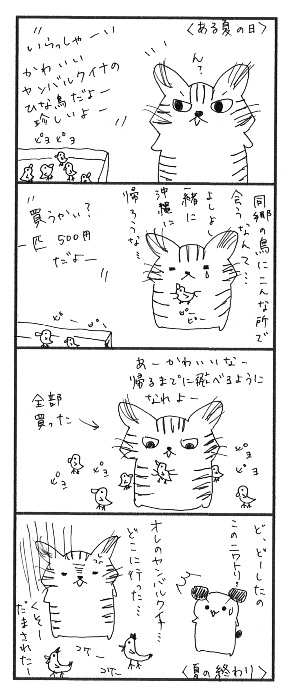 〈ある夏の日〉
ん？
いらっしゃーい
かわいい
ヤンバルクイナの
ひな鳥だよー
珍しいよー
ピヨ ピヨ
同郷の鳥にこんな所で
会うなんて…
よしよし
一緒に
沖縄に
帰ろうな…
ピー
ピー
買うかい？
一匹 500円
だよー
ピー ピー
あーかわいいなー
帰るまでに飛べるように
なれよー
全部
買った
ピヨ
ピヨ
ピヨ
ピヨ
ど、どーしたの
このニワトリ！
オレのヤンバルクイナ…
どこに行った…
くそー
だまされたー
コケー
コケー
〈夏の終わり〉